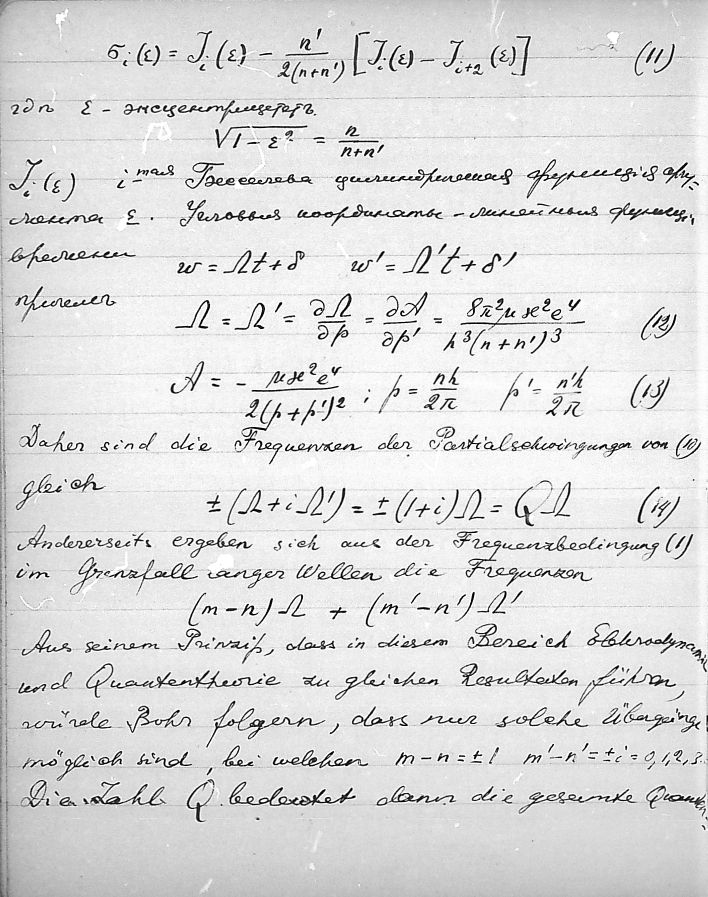 σᵢ(ε) = Jᵢ(ε) − n'/2(n+n') [Jᵢ(ε) − Jᵢ₊₂(ε)] (11)
гдѣ ε – эксцентрицитетъ
√(1−ε²) = n/(n+n')
Jᵢ(ε) i-тая Бесселева цилиндрическая функція аргу-
мента ε. Угловыя координаты – линейныя функціи
времени
w = Ωt + δ w' = Ω't + δ'
причемъ
Ω = Ω' = ∂Ω/∂p = ∂A/∂p' = 8π²μϰ²e⁴/h³(n+n')³ (12)
A = − μϰ²e⁴/2(p+p')² ; p = nh/2π p' = n'h/2π (13)
Daher sind die Frequenzen der Partialschwingungen von (10)
gleich
±(Ω + iΩ') = ±(1+i)Ω = QΩ (14)
Andererseits ergeben sich aus der Frequenzbedingung (1)
im Grenzfall langer Wellen die Frequenzen
(m−n)Ω + (m'−n')Ω'
Aus seinem Prinzip, dass in diesem Bereich Elektrodynamik
und Quantentheorie zu gleichen Resultaten führen,
würde Bohr folgern, dass nur solche Übergänge
möglich sind, bei welchen m−n = ±1 m'−n' = ±i = 0,1,2,3.
Die Zahl Q bedeutet dann die gesamte Quanten-